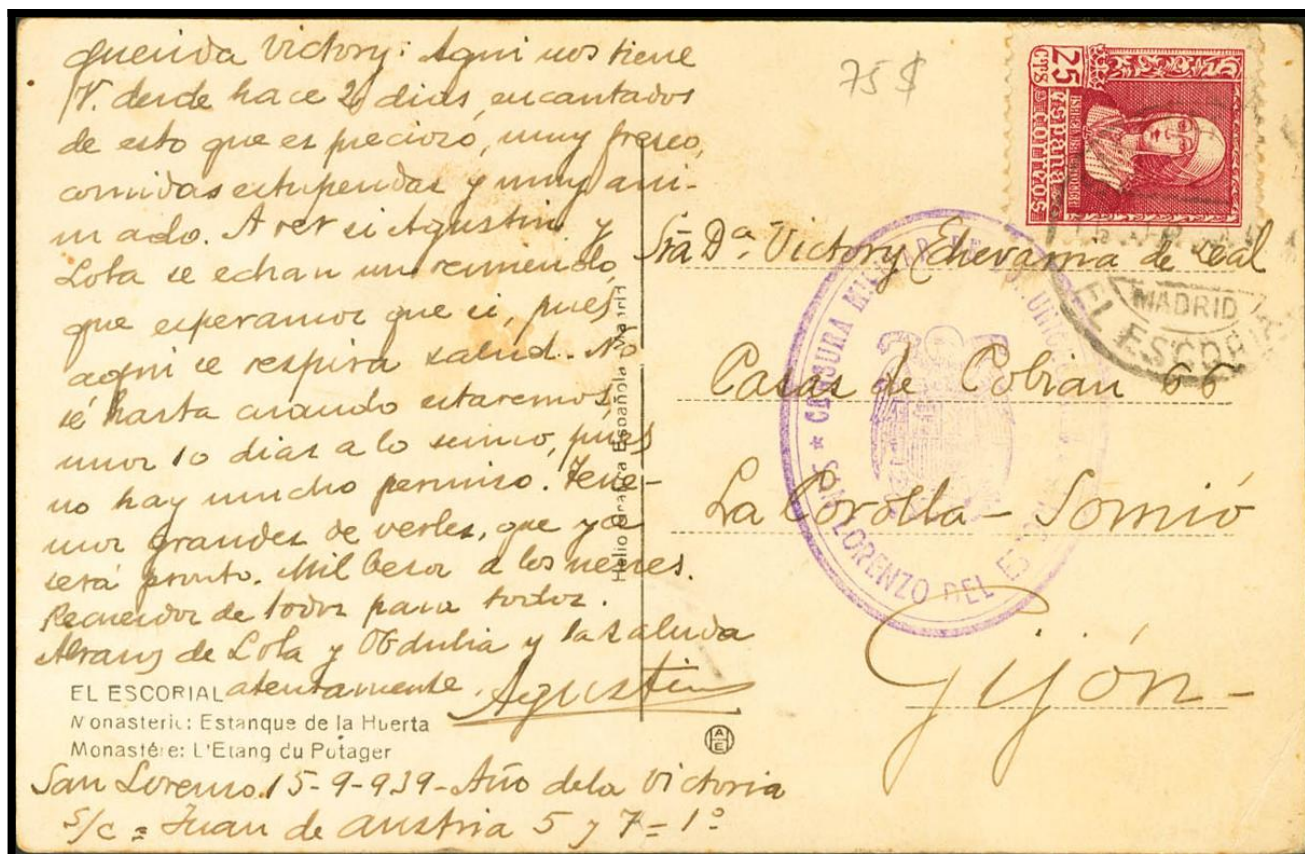 querida Victory: Aqui nos tiene
V. desde hace 20 dias, encantados
de esto que es precioso, muy fresco,
comidas estupendas y muy ani-
mado. A ver si Agustin y
Lola se echan un remiendo,
que esperamos que si, pues
aqui se respira salud. No
sé hasta cuando estaremos,
unos 10 dias a lo sumo, pues
no hay mucho permiso. Tene-
mos grandes de verles, que ya
será pronto. Mil besos a los nenes.
Recuerdos de todos para todos.
Abrazos de Lola y Obdulia y la saluda
atentamente. Agustin
EL ESCORIAL
Monasterio: Estanque de la Huerta
Monastére: L'Etang du Potager
San Lorenzo. 15-9-939 - Año de la Victoria
S/c = Juan de Austria 5 y 7 = 1º
Helio Grafica Española Madrid
A E
75 $
25 CTS
España
CORREOS
MADRID
EL ESCORIAL
CENSURA MILITAR
SAN LORENZO DEL ESCORIAL
Sra Dª Victory Echevarria de Leal
Casas de Cobian 66
La Corolla - Somió
Gijón -